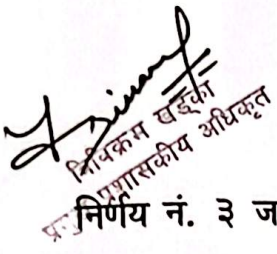 त्रिविक्रम खड्का
प्रमुख प्रशासकीय अधिकृत
निर्णय नं. ३ ज